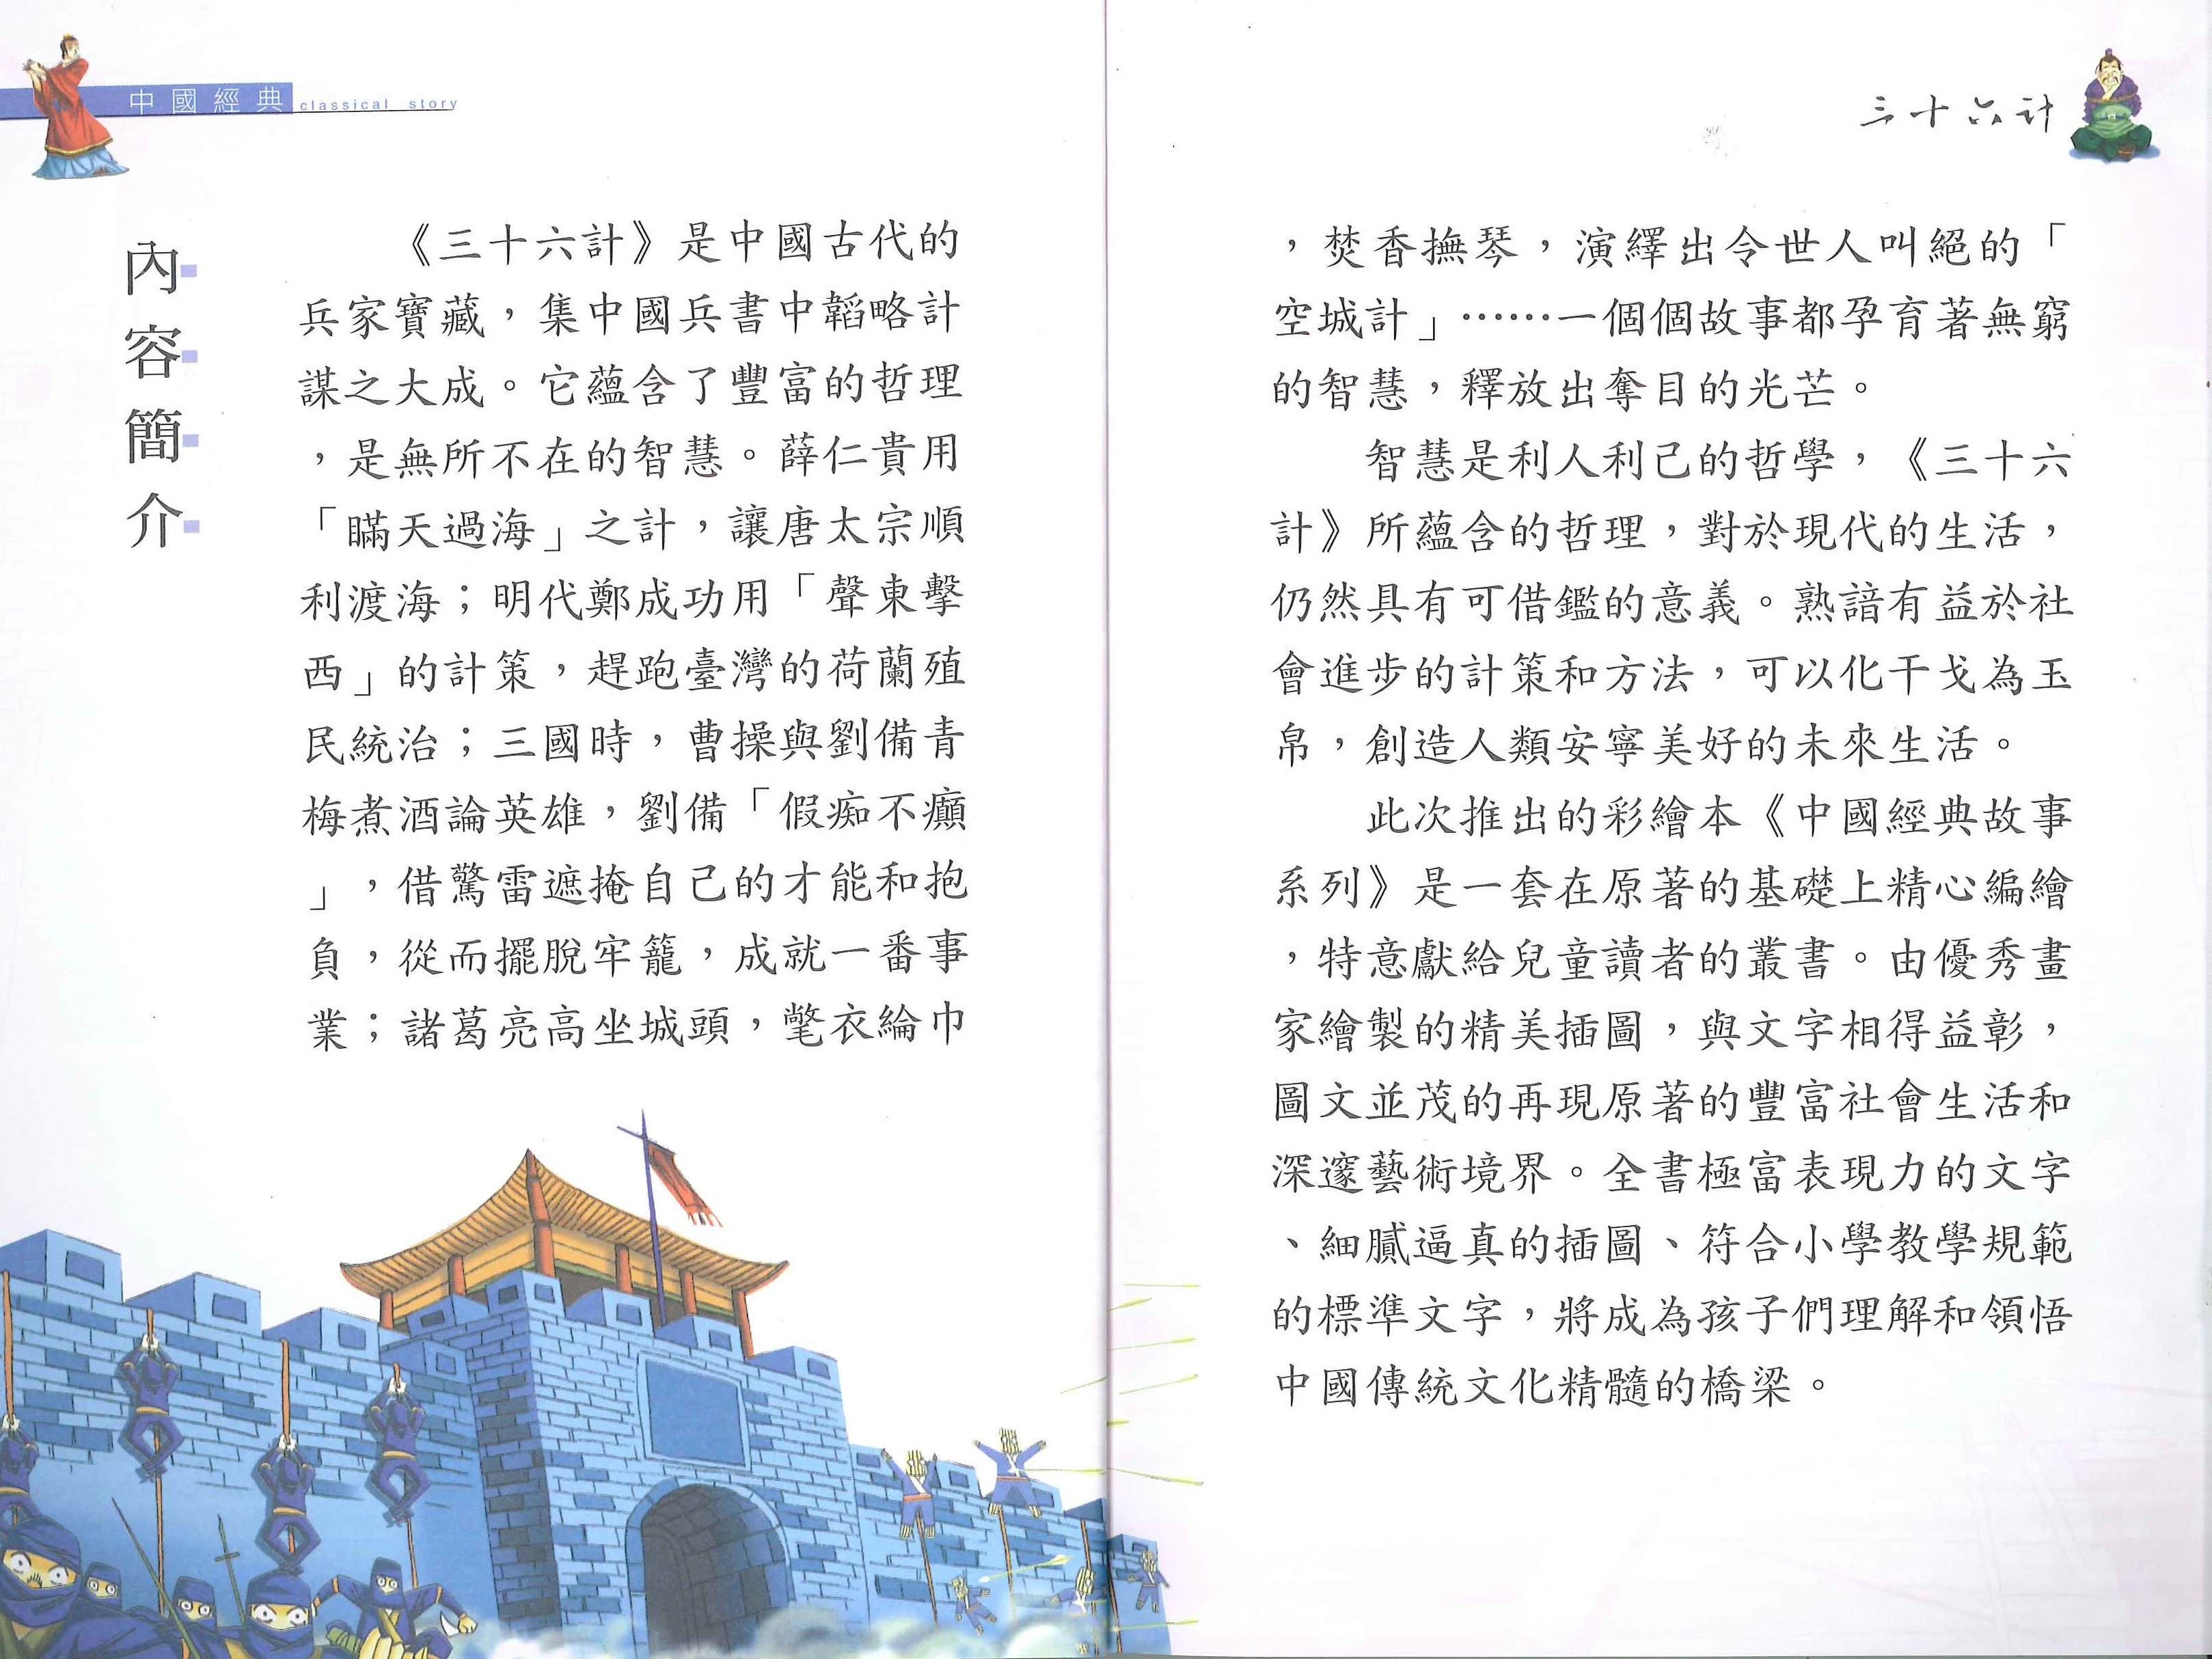 中國經典 classical story
內容簡介
《三十六計》是中國古代的
兵家寶藏，集中國兵書中韜略計
謀之大成。它蘊含了豐富的哲理
，是無所不在的智慧。薛仁貴用
「瞞天過海」之計，讓唐太宗順
利渡海；明代鄭成功用「聲東擊
西」的計策，趕跑臺灣的荷蘭殖
民統治；三國時，曹操與劉備青
梅煮酒論英雄，劉備「假痴不癲
」，借驚雷遮掩自己的才能和抱
負，從而擺脫牢籠，成就一番事
業；諸葛亮高坐城頭，氅衣綸巾
三十六计
，焚香撫琴，演繹出令世人叫絕的「
空城計」……一個個故事都孕育著無窮
的智慧，釋放出奪目的光芒。
智慧是利人利己的哲學，《三十六
計》所蘊含的哲理，對於現代的生活，
仍然具有可借鑑的意義。熟諳有益於社
會進步的計策和方法，可以化干戈為玉
帛，創造人類安寧美好的未來生活。
此次推出的彩繪本《中國經典故事
系列》是一套在原著的基礎上精心編繪
，特意獻給兒童讀者的叢書。由優秀畫
家繪製的精美插圖，與文字相得益彰，
圖文並茂的再現原著的豐富社會生活和
深邃藝術境界。全書極富表現力的文字
、細膩逼真的插圖、符合小學教學規範
的標準文字，將成為孩子們理解和領悟
中國傳統文化精髓的橋梁。